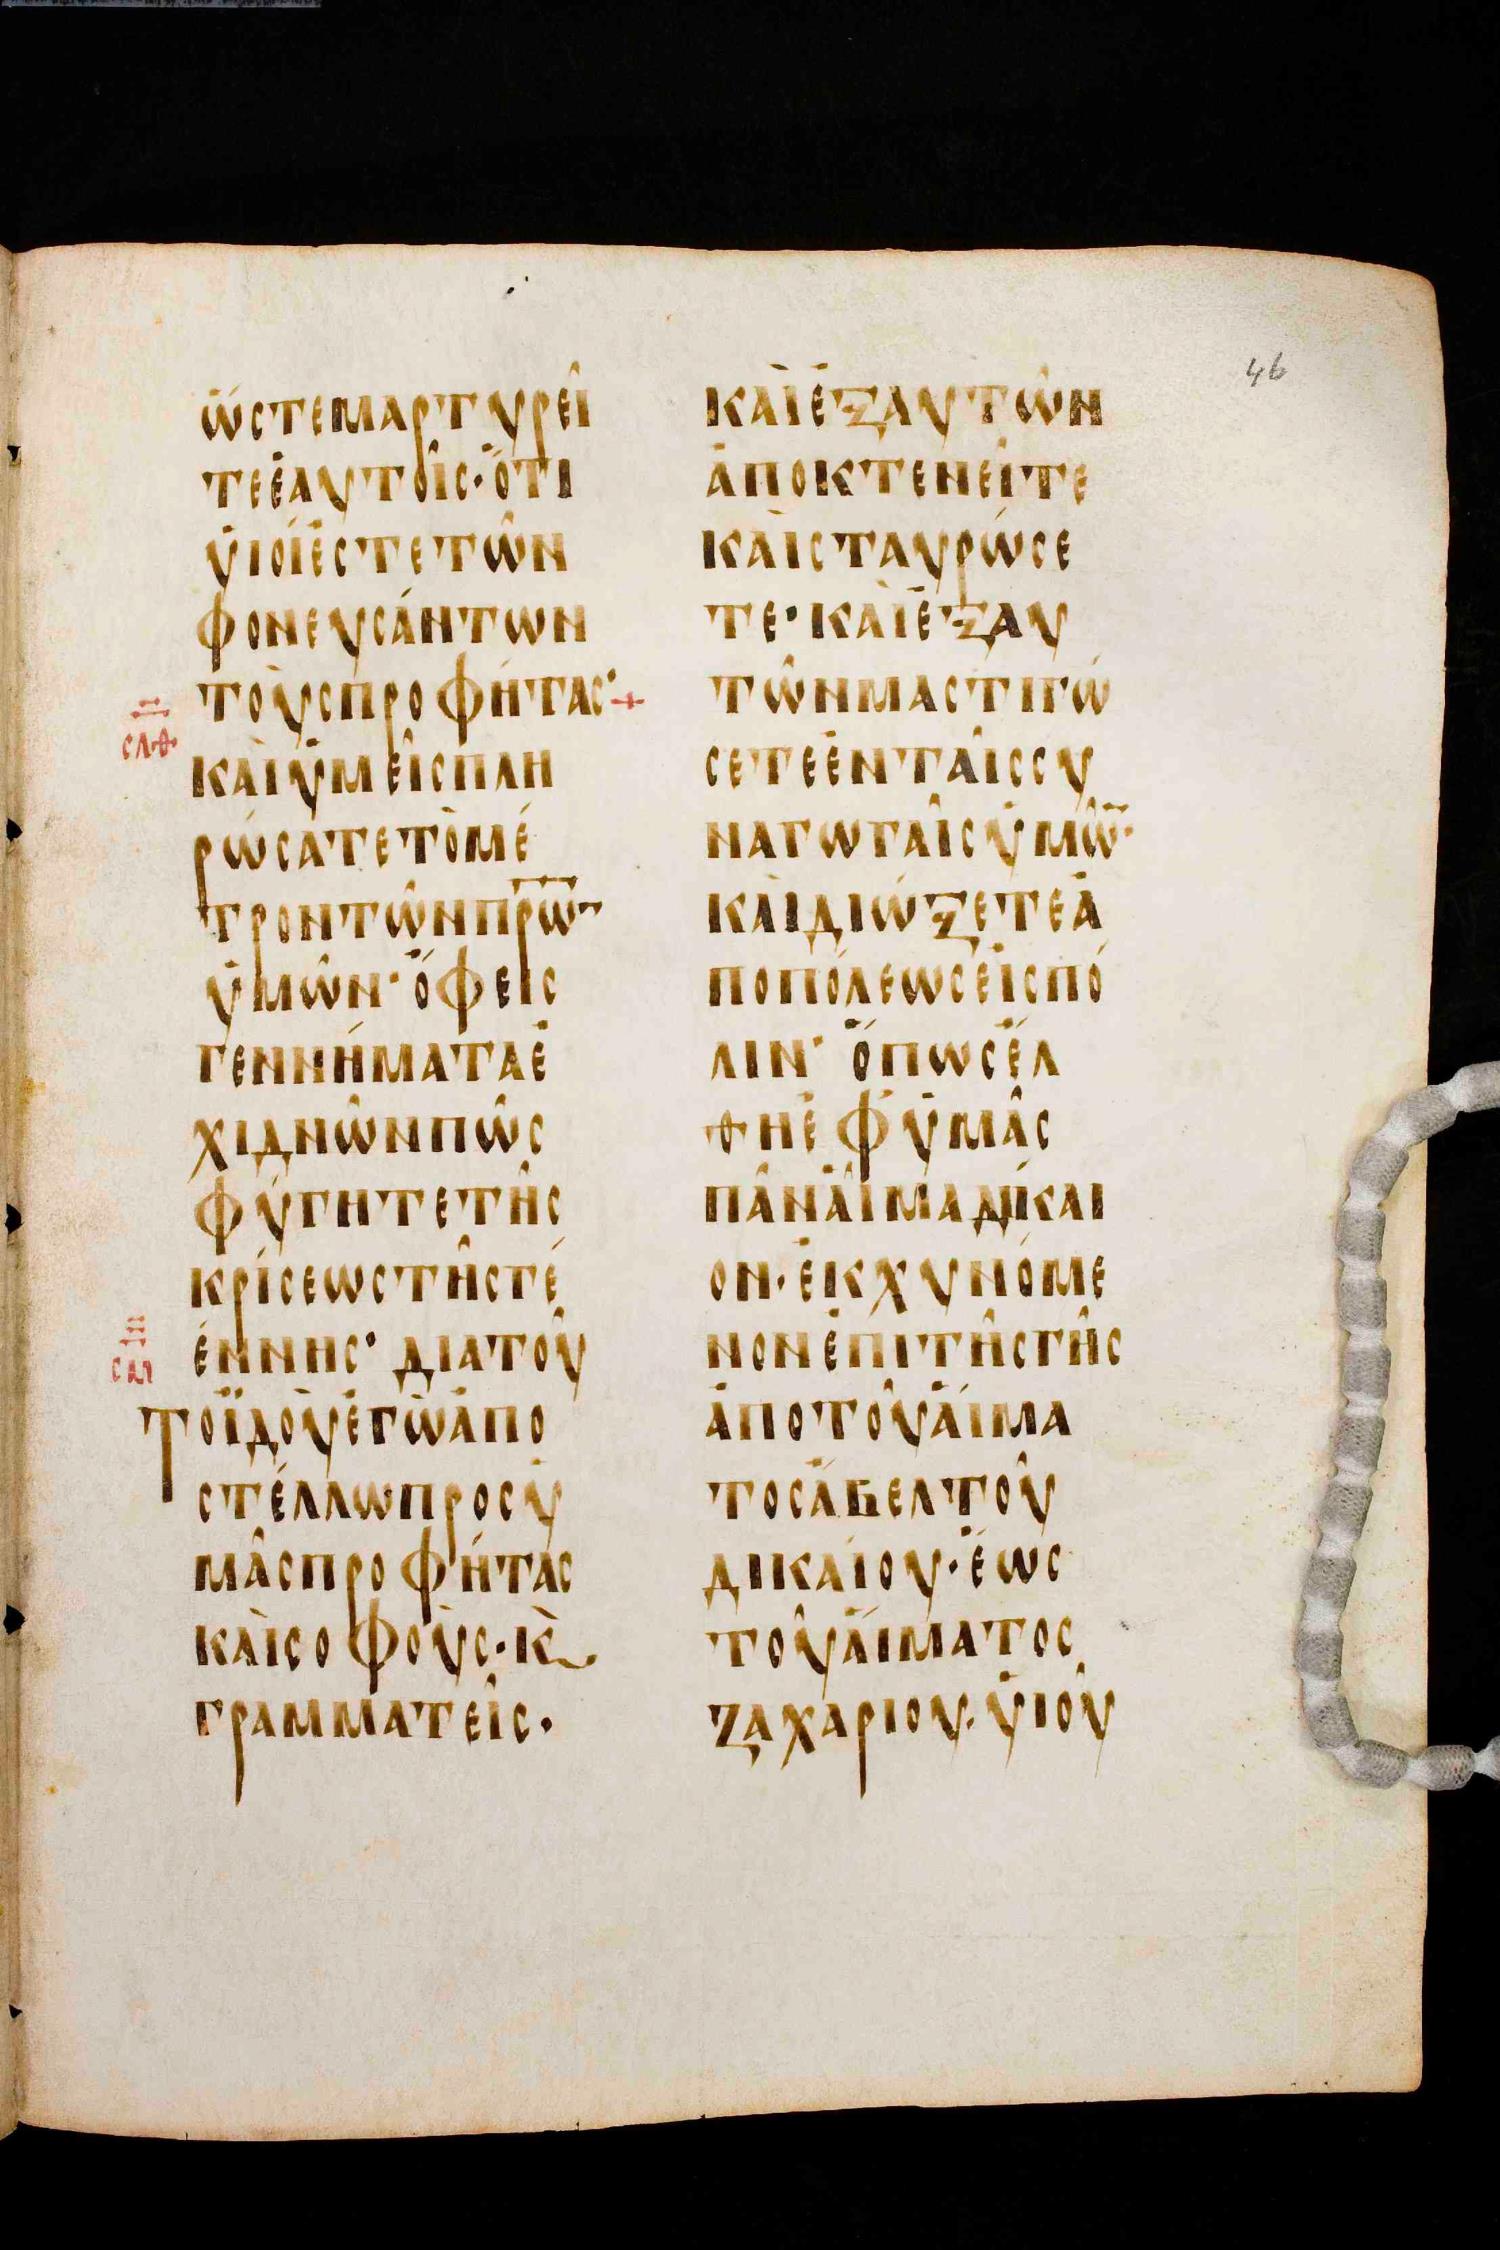 46
ὥστεμαρτυρεῖ
τεἑαυτοῖς·ὅτι
ὑιοίἐστετῶν
φονευσάντων
τοὺςπροφήτας·+
σλθ
καὶὑμεῖςπλη
ρώσατετὸμέ
τροντῶνπρ̅ω̅ν
ὑμῶν·ὄφεις
γεννήματαἐ
χιδνῶνπῶς
φύγητετῆς
κρίσεωςτῆςγέ
έννης·διατοῦ
σλι
Τοἴδοὺἐγὼἀπο
στέλλωπροσὑ
μᾶςπροφήτας
καὶσοφοὺς·κ̀
γραμματεῖς·
καὶἐξαυτῶν
ἀποκτενεῖτε
καὶσταυρώσε
τε·καὶἐξαυ
τῶνμαστιγώ
σετεἐνταῖςσυ
ναγωγαῖςὑμῶ̅·
καὶδιώξετεἀ
ποπόλεωςεἰςπό
λιν·ὅπωςἔλ
θηἐφὑμᾶς
πᾶναἷμαδίκαι
ον·ἐκχυνόμε
νονἐπιτῆςγῆς
ἀποτοῦαἵμα
τοςἄβελτοῦ
δικαίου·ἕως
τοῦαἵματος
ζαχαριου·ὑιοῦ